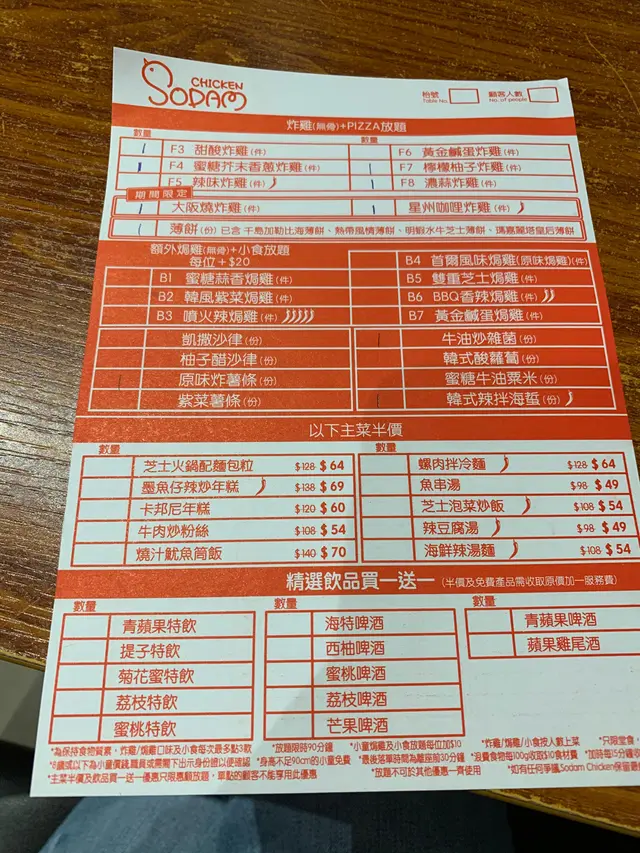 CHICKEN
SODAM
枱號 Table No.
顧客人數 No. of people
炸雞(無骨)+PIZZA放題
數量
數量
F3 甜酸炸雞(件)
F6 黃金鹹蛋炸雞(件)
F4 蜜糖芥末香蔥炸雞(件)
F7 檸檬柚子炸雞(件)
F5 辣味炸雞(件)
F8 濃蒜炸雞(件)
期間限定
大阪燒炸雞(件)
星州咖哩炸雞(件)
薄餅(份) 已含 千島加勒比海薄餅、熱帶風情薄餅、明蝦水牛芝士薄餅、瑪嘉麗塔皇后薄餅
額外焗雞(無骨)+小食放題
每位+$20
B4 首爾風味焗雞(原味焗雞)(件)
B1 蜜糖蒜香焗雞(件)
B5 雙重芝士焗雞(件)
B2 韓風紫菜焗雞(件)
B6 BBQ香辣焗雞(件)
B3 噴火辣焗雞(件)
B7 黃金鹹蛋焗雞(件)
凱撒沙律(份)
牛油炒雜菌(份)
柚子醋沙律(份)
韓式酸蘿蔔(份)
原味炸薯條(份)
蜜糖牛油粟米(份)
紫菜薯條(份)
韓式辣拌海蜇(份)
以下主菜半價
數量
數量
芝士火鍋配麵包粒 $128 $64
螺肉拌冷麵 $128 $64
墨魚仔辣炒年糕 $138 $69
魚串湯 $98 $49
卡邦尼年糕 $120 $60
芝士泡菜炒飯 $108 $54
牛肉炒粉絲 $108 $54
辣豆腐湯 $98 $49
燒汁魷魚筒飯 $140 $70
海鮮辣湯麵 $108 $54
精選飲品買一送一 (半價及免費產品需收取原價加一服務費)
數量
數量
數量
青蘋果特飲
海特啤酒
青蘋果啤酒
提子特飲
西柚啤酒
蘋果雞尾酒
菊花蜜特飲
蜜桃啤酒
荔枝特飲
荔枝啤酒
蜜桃特飲
芒果啤酒
*為保持食物質素，炸雞/焗雞口味及小食每次最多點3款
*放題限時90分鐘
*小童焗雞及小食放題每位加$10
*炸雞/焗雞/小食按人數上菜
*只限堂食
*8歲或以下為小童價錢,職員或需閣下出示身份證以便確認
*身高不足90cm的小童免費
*最後落單時間為離座前30分鐘
*浪費食物每100g收取$10食材費
*加時每15分鐘收
*主菜半價及飲品買一送一優惠只限惠顧放題，單點的顧客不能享用此優惠
*放題不可於其他優惠一齊使用
*如有任何爭議,Sodam Chicken保留最